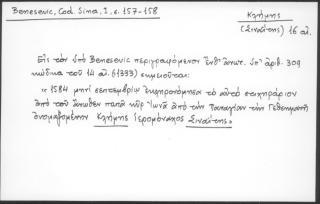 Benesevic, Cod. Sina, I, σ. 157-158
Κλήμης
(Σιναΐτης) 16 αἰ.
Εἰς τὸν ὑπὸ Benesevic περιγραφόμενον ἔνθ' ἀνωτ. ὑπ' ἀριθ. 309
κώδικα τοῦ 14 αἰ. (1333) σημειοῦται:
« 1584 μηνὶ σεπτεμβρίῳ ἐκληρονόμησα τὸ αὐτὸ στιχηράριον
ἀπὸ τοῦ ἄνωθεν παπᾶ κὺρ Ἰωνᾶ ἀπὸ τὴν τὴν Γεθσημανῆ
ὀνομαζομένην Κλήμης Ἱερομόναχος Σιναΐτης.»